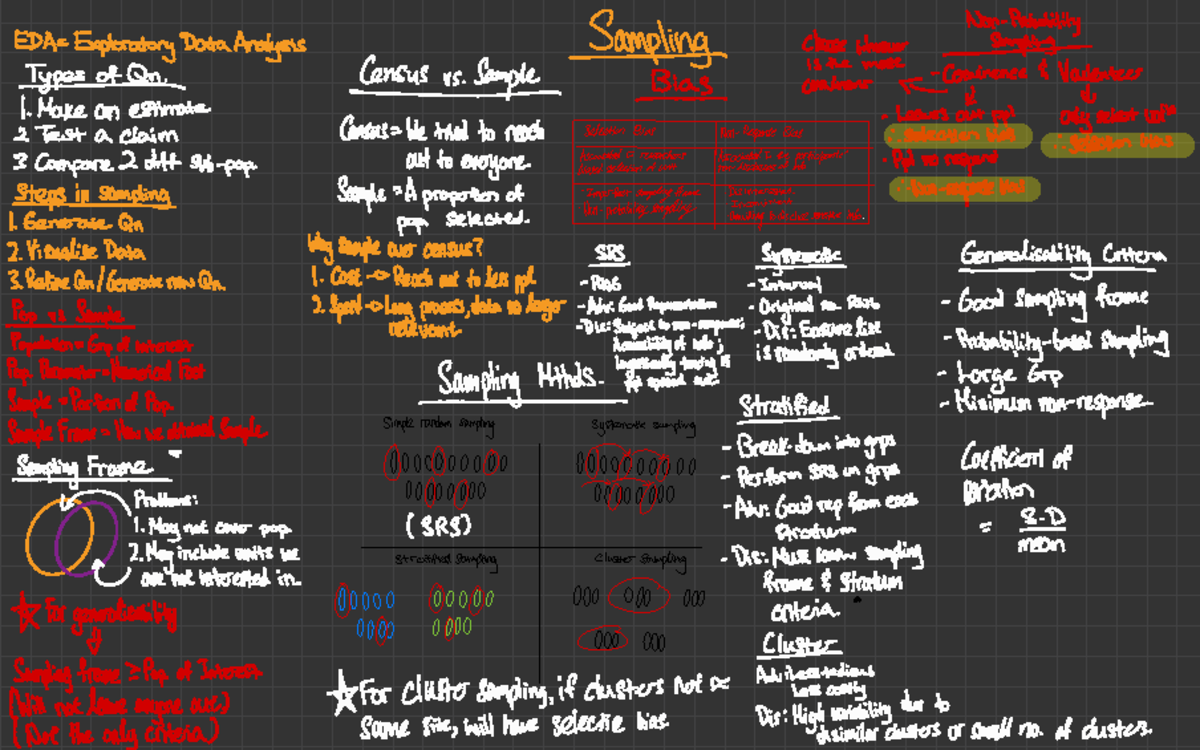 EDA = Exploratory Data Analysis
Types of Qn.
1. Make an estimate
2 Test a claim
3 Compare 2 diff sub-pop.
Steps in sampling
1. Generate Qn
2. Visualise Data
3. Refine Qn / Generate new Qn.
Pop vs Sample
Population = Grp of interest
Pop. Parameter = Numerical Fact
Sample = Portion of Pop.
Sample Frame = How we obtained Sample
Sampling Frame
Problems:
1. May not cover pop.
2. May include units we
are not interested in.
For generalisability
Sampling frame ≥ Pop. of Interest
(Will not leave anyone out)
(Not the only criteria)
Census vs. Sample
Census = We tried to reach
out to everyone.
Sample = A proportion of
pop selected.
Why sample over census?
1. Cost → Reach out to less ppl
2. Speed → Long process, data no longer
relevant.
Sampling
Bias
Selection Bias
Non-Response Bias
Imperfect sampling frame
Non-probability sampling
Inconvenience
Non-Probability
Sampling
- Convenience & Volunteer
is the most
common
only select
∴ selection bias
∴ selection bias
• Ppl no respond
∴ Non-response bias
SRS
- RNG
- Adv: Good Representation
- Dis: Subject to non-response;
Systematic
- Interval
- Original no. RNG
- Dif: Ensure list
is randomly ordered
Generalisability Criteria
- Good sampling frame
- Probability-based sampling
- Large Grp
- Minimum non-response
Coefficient of
Variation
= S.D
mean
Sampling Mthds.
Simple random sampling
Systematic sampling
(SRS)
Stratified Sampling
Cluster Sampling
Stratified
- Break-down into grps
- Perform SRS in grps
- Adv: Good rep from each
Stratum
- Dis: Must know sampling
frame & stratum
criteria.
Cluster
Adv: less tedious
less costly
Dis: High variability due to
dissimilar clusters or small no. of clusters.
For cluster sampling, if clusters not ≈
same size, will have selection bias